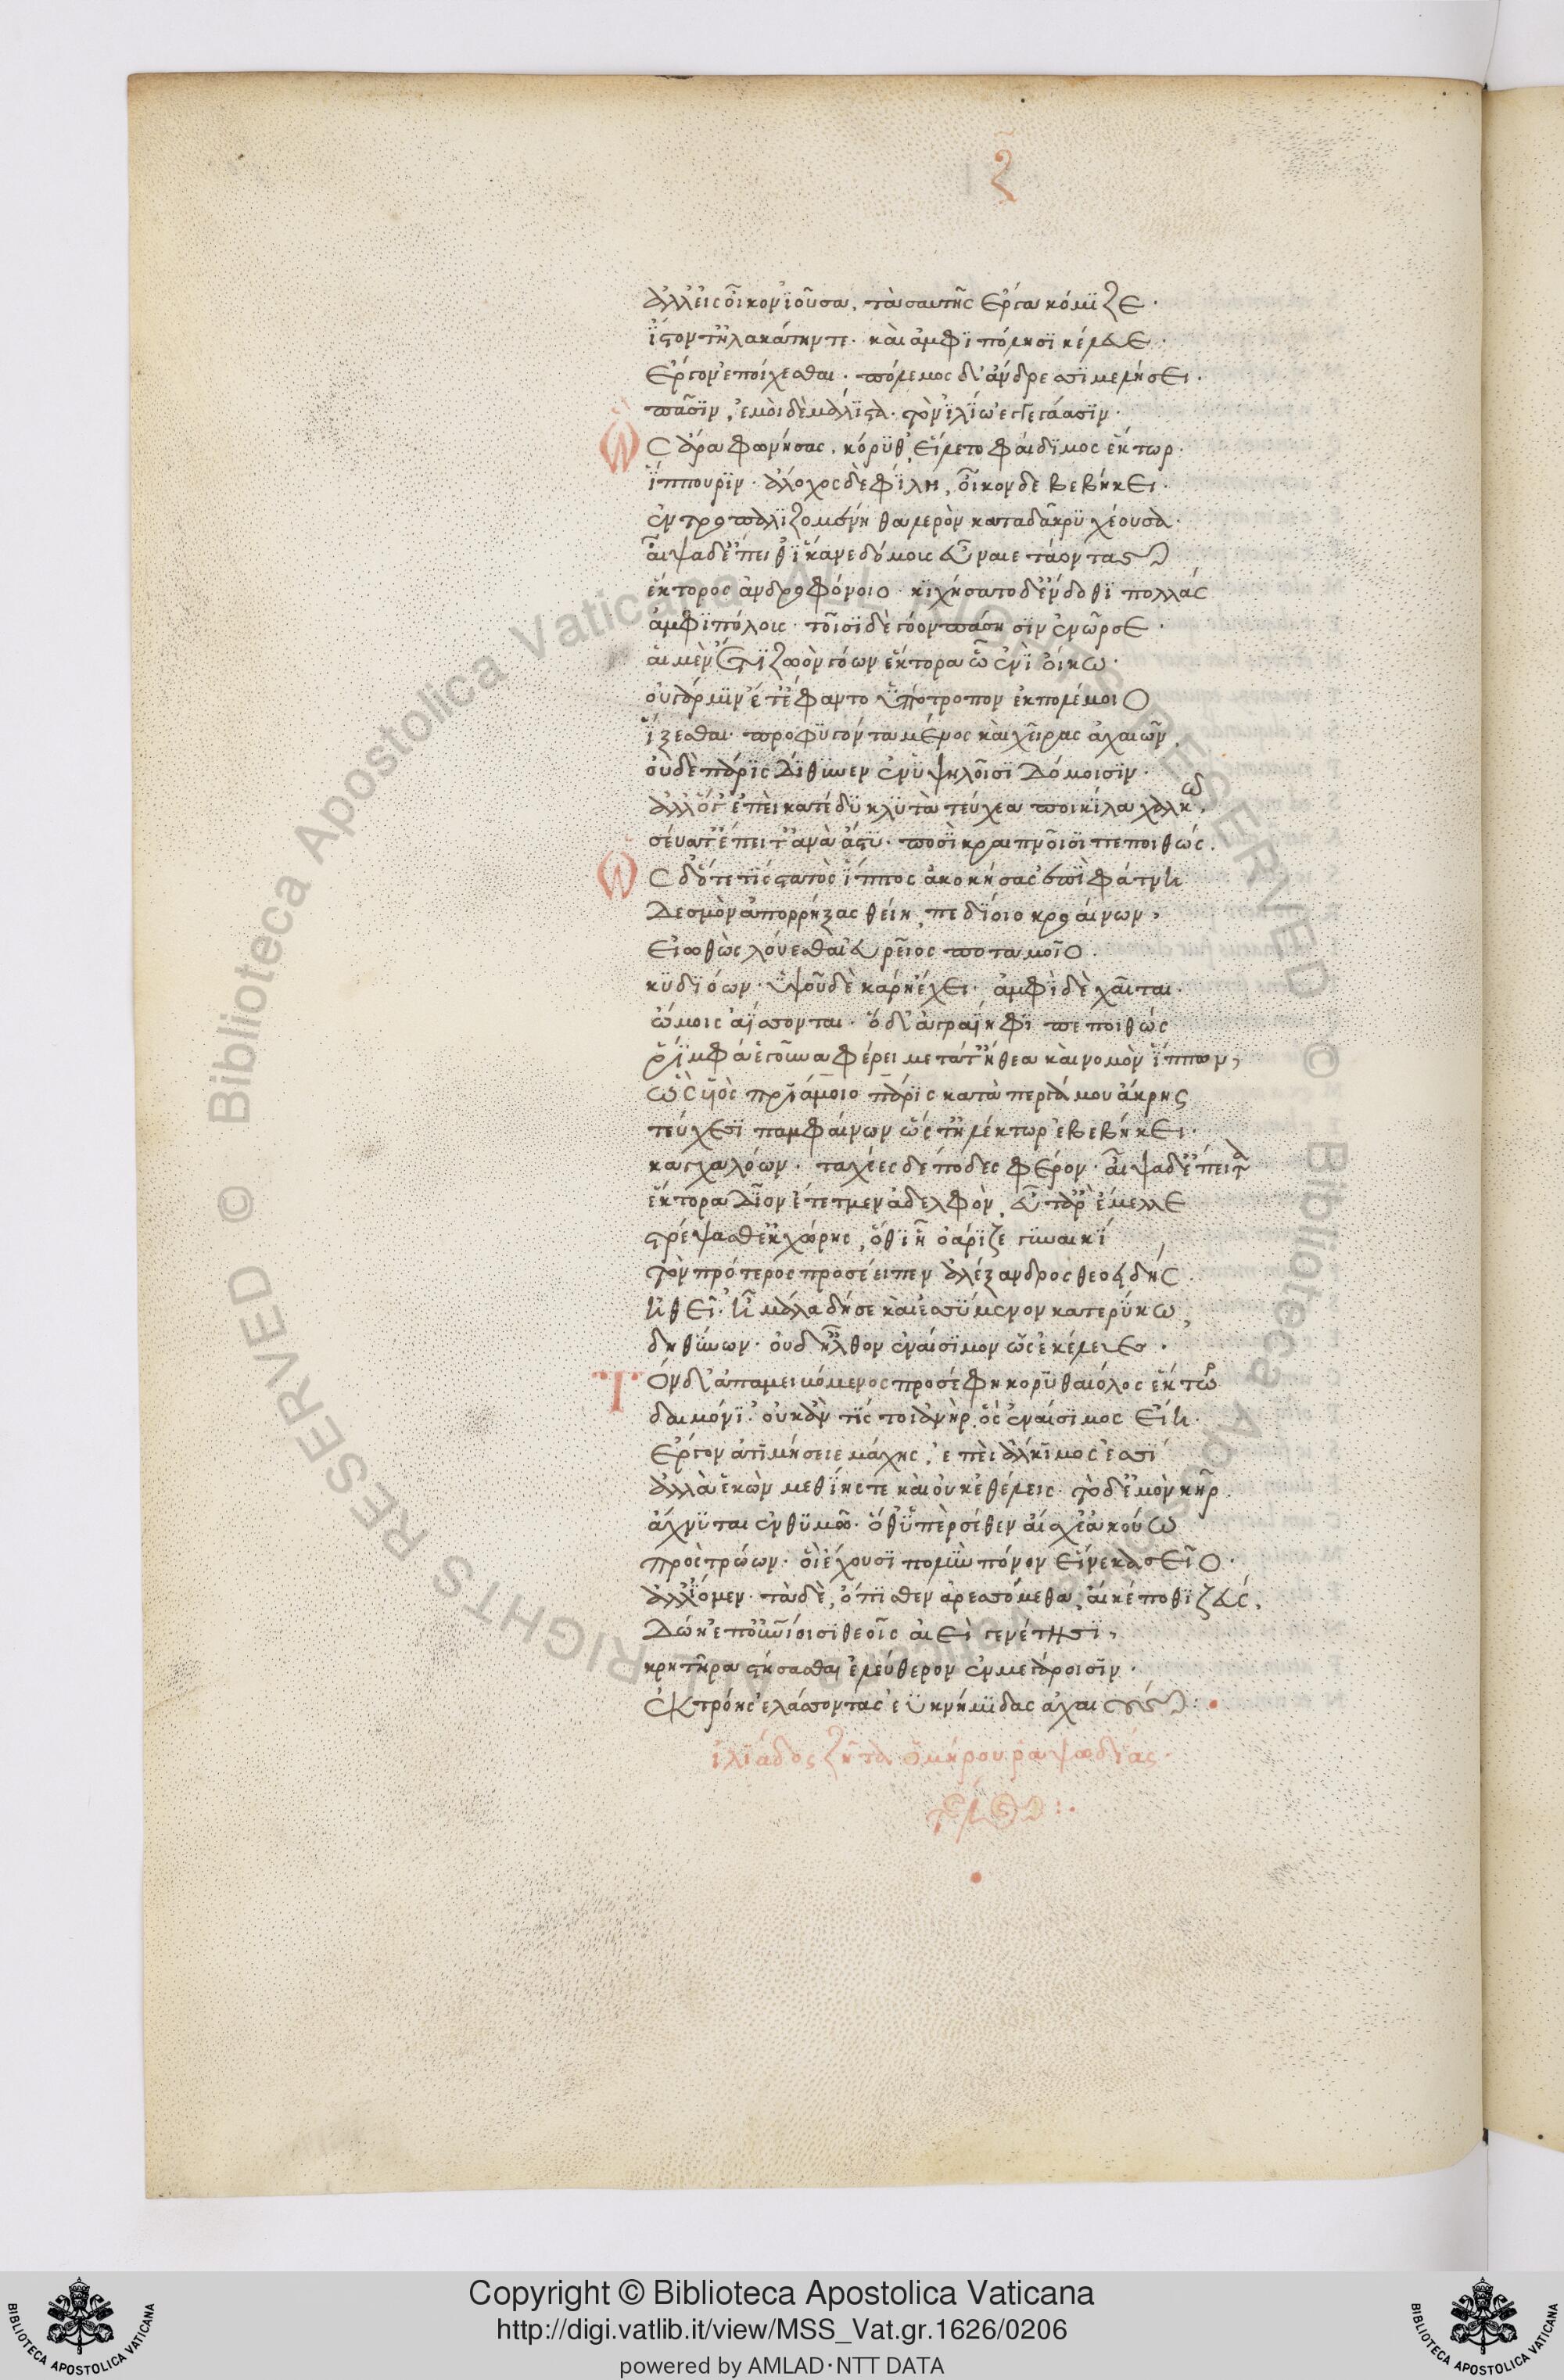 ζ
ἀλλ' εἰς οἶκον ἰοῦσα, τὰ σαυτῆς ἔργα κόμιζε·
ἱστόν τ' ἠλακάτην τε· καὶ ἀμφιπόλοισι κέλευε·
ἔργον ἐποίχεσθαι· πόλεμος δ' ἄνδρεσσι μελήσει·
πᾶσιν, ἐμοὶ δὲ μάλιστα· τοὶ ἰλίω ἐγγεγάασιν·
Ὣς ἄρα φωνήσας, κόρυθ' εἵλετο φαίδιμος ἕκτωρ·
ἵππουριν· ἄλοχος δὲ φίλη, οἶκον δὲ βεβήκει·
ἐντροπαλιζομένη θαλερὸν κατὰ δάκρυ χέουσα·
αἶψα δ' ἔπειθ' ἵκανε δόμους εὖ ναιετάοντας
ἕκτορος ἀνδροφόνοιο· κιχήσατο δ' ἔνδοθι πολλάς
ἀμφιπόλους· τοῖσι δὲ γόον πάσησιν ἐνῶρσε·
αἱ μὲν ἔτι ζωὸν γόων ἕκτορα ᾧ ἐνὶ οἴκω·
οὐ γάρ μιν ἔτ' ἔφαντο ὑπότροπον ἐκ πολέμοιο
ἵξεσθαι· προφυγόντα μένος καὶ χεῖρας ἀχαιῶν,
οὐδὲ πάρις δήθυνεν ἐν ὑψηλοῖσι δόμοισιν·
ἀλλ' ὅγ' ἐπεὶ κατέδυ κλυτὰ τεύχεα ποικίλα χαλκῶ,
σεύατ' ἔπειτ' ἀνὰ ἄστυ· ποσὶ κραιπνοῖσι πεποιθώς.
Ὡς δ' ὅτε τίς στατὸς ἵππος ἀκοστήσας ἐπὶ φάτνη
δεσμὸν ἀπορρήξας θείη, πεδίοιο κροαίνων,
εἰωθὼς λούεσθαι εὐρεῖος ποταμοῖο.
κυδιόων· ὑψοῦ δὲ κάρη ἔχει· ἀμφὶ δὲ χαῖται·
ὤμοις ἀΐσσονται· ὁ δ' ἀγλαΐηφι πεποιθώς
ῥίμφα ἑ γοῦνα φέρει μετά τ' ἤθεα καὶ νομὸν ἵππων,
ὣς υἱὸς πριάμοιο πάρις κατὰ περγάμου ἄκρης
τεύχεσι παμφαίνων ὥς τ' ἠλέκτωρ ἐβεβήκει·
καγχαλόων· ταχέες δὲ πόδες φέρον· αἶψα δ' ἔπειτα
ἕκτορα δῖον ἔτετμεν ἀδελφὸν, εὖτ' ἄρ' ἔμελλε
στρέψασθ' ἐκ χώρης, ὅθι ᾗ ὀάριζε γυναικί
τὸν πρότερος προσέειπεν ἀλέξανδρος θεοειδής.
ἠθεῖ· ἦ μάλα δή σε καὶ ἐσσύμενον κατερύκω,
δηθύνων· οὐδ' ἦλθον ἐναίσιμον ὡς ἐκέλευες·
Τόνδ' ἀπαμειβόμενος προσέφη κορυθαίολος ἕκτωρ
δαιμόνι'· οὐκ ἄν τίς τοι ἀνὴρ, ὃς ἐναίσιμος εἴη·
ἔργον ἀτιμήσειε μάχης, ἐπεὶ ἄλκιμος ἐσσί
ἀλλὰ ἑκὼν μεθίης τε καὶ οὐκ ἐθέλεις· τὸ δ' ἐμὸν κῆρ.
ἄχνυται ἐν θυμῶ· ὅθ' ὑπὲρ σέθεν αἴσχε' ἀκούω
πρὸς τρώων· οἳ ἔχουσι πολὺν πόνον εἵνεκα σεῖο·
ἀλλ' ἴομεν· τὰ δὲ, ὄπισθεν ἀρεσσόμεθα, αἴ κέ ποθι ζεύς,
δώη ἐπουρανίοισι θεοῖς αἰειγενέτησι,
κρητῆρα στήσασθαι ἐλεύθερον ἐν μεγάροισιν·
ἐκ τροίης ἐλάσοντας ἐϋκνήμιδας ἀχαιούς:
ἰλιάδος ζῆτα ὁμήρου ῥαψωδίας·
τέλος:·
Copyright © Biblioteca Apostolica Vaticana
http://digi.vatlib.it/view/MSS_Vat.gr.1626/0206
powered by AMLAD·NTT DATA
BIBLIOTECA APOSTOLICA VATICANA
BIBLIOTECA APOSTOLICA VATICANA
© Biblioteca Apostolica Vaticana ALL RIGHTS RESERVED © Biblioteca Apostolica Vaticana ALL RIGHTS RESERVED